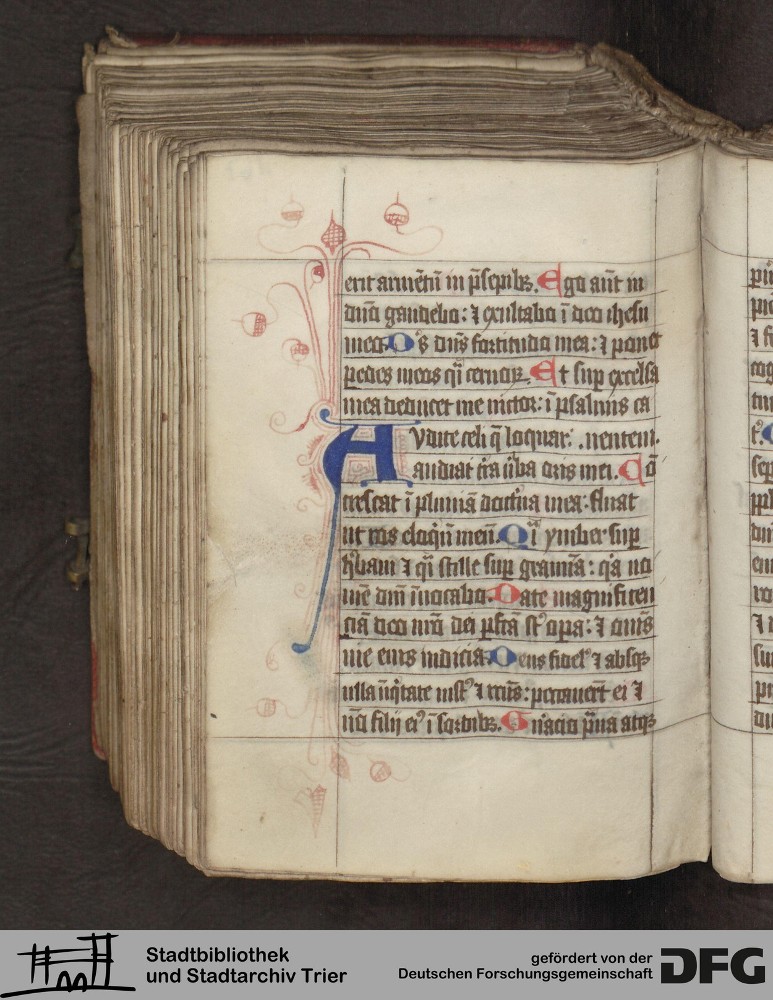 erit armētū in p̄sepibꝫ. Ego aūt in
dn̄o gaudebo: ⁊ exultabo ī deo ihesu
meo. Ds̾ dn̄s fortitudo mea: ⁊ ponet
pedes meos q̄i ceruoꝝ. Et sup excelsa
mea deducet me uictor: ī psalmis ca
Audite celi q̄ loquar: .nentem.
audiat t̄ra u̾ba oris mei. Cō
crescat ī pluuiā doct̾na mea: fluat
ut ros eloq̄ū meū. Q̄i ymber sup
h̾bam ⁊ q̄i stille sup gramīa: q̾a no
mē dn̄i īuocabo. Date magnificen
ciā deo nr̄o dei ꝑfc̄ā st̾ opa: ⁊ om̄s
uie eius iudicia. Deus fidel̾ ⁊ absqꝫ
ulla īiq̾tate iust̾ ⁊ rectus: peccauer̄t ei ⁊
nō filij ei̾ ī sordibꝫ. Gn̄acio p̄ua atqꝫ
Stadtbibliothek
und Stadtarchiv Trier
gefördert von der
Deutschen Forschungsgemeinschaft
DFG